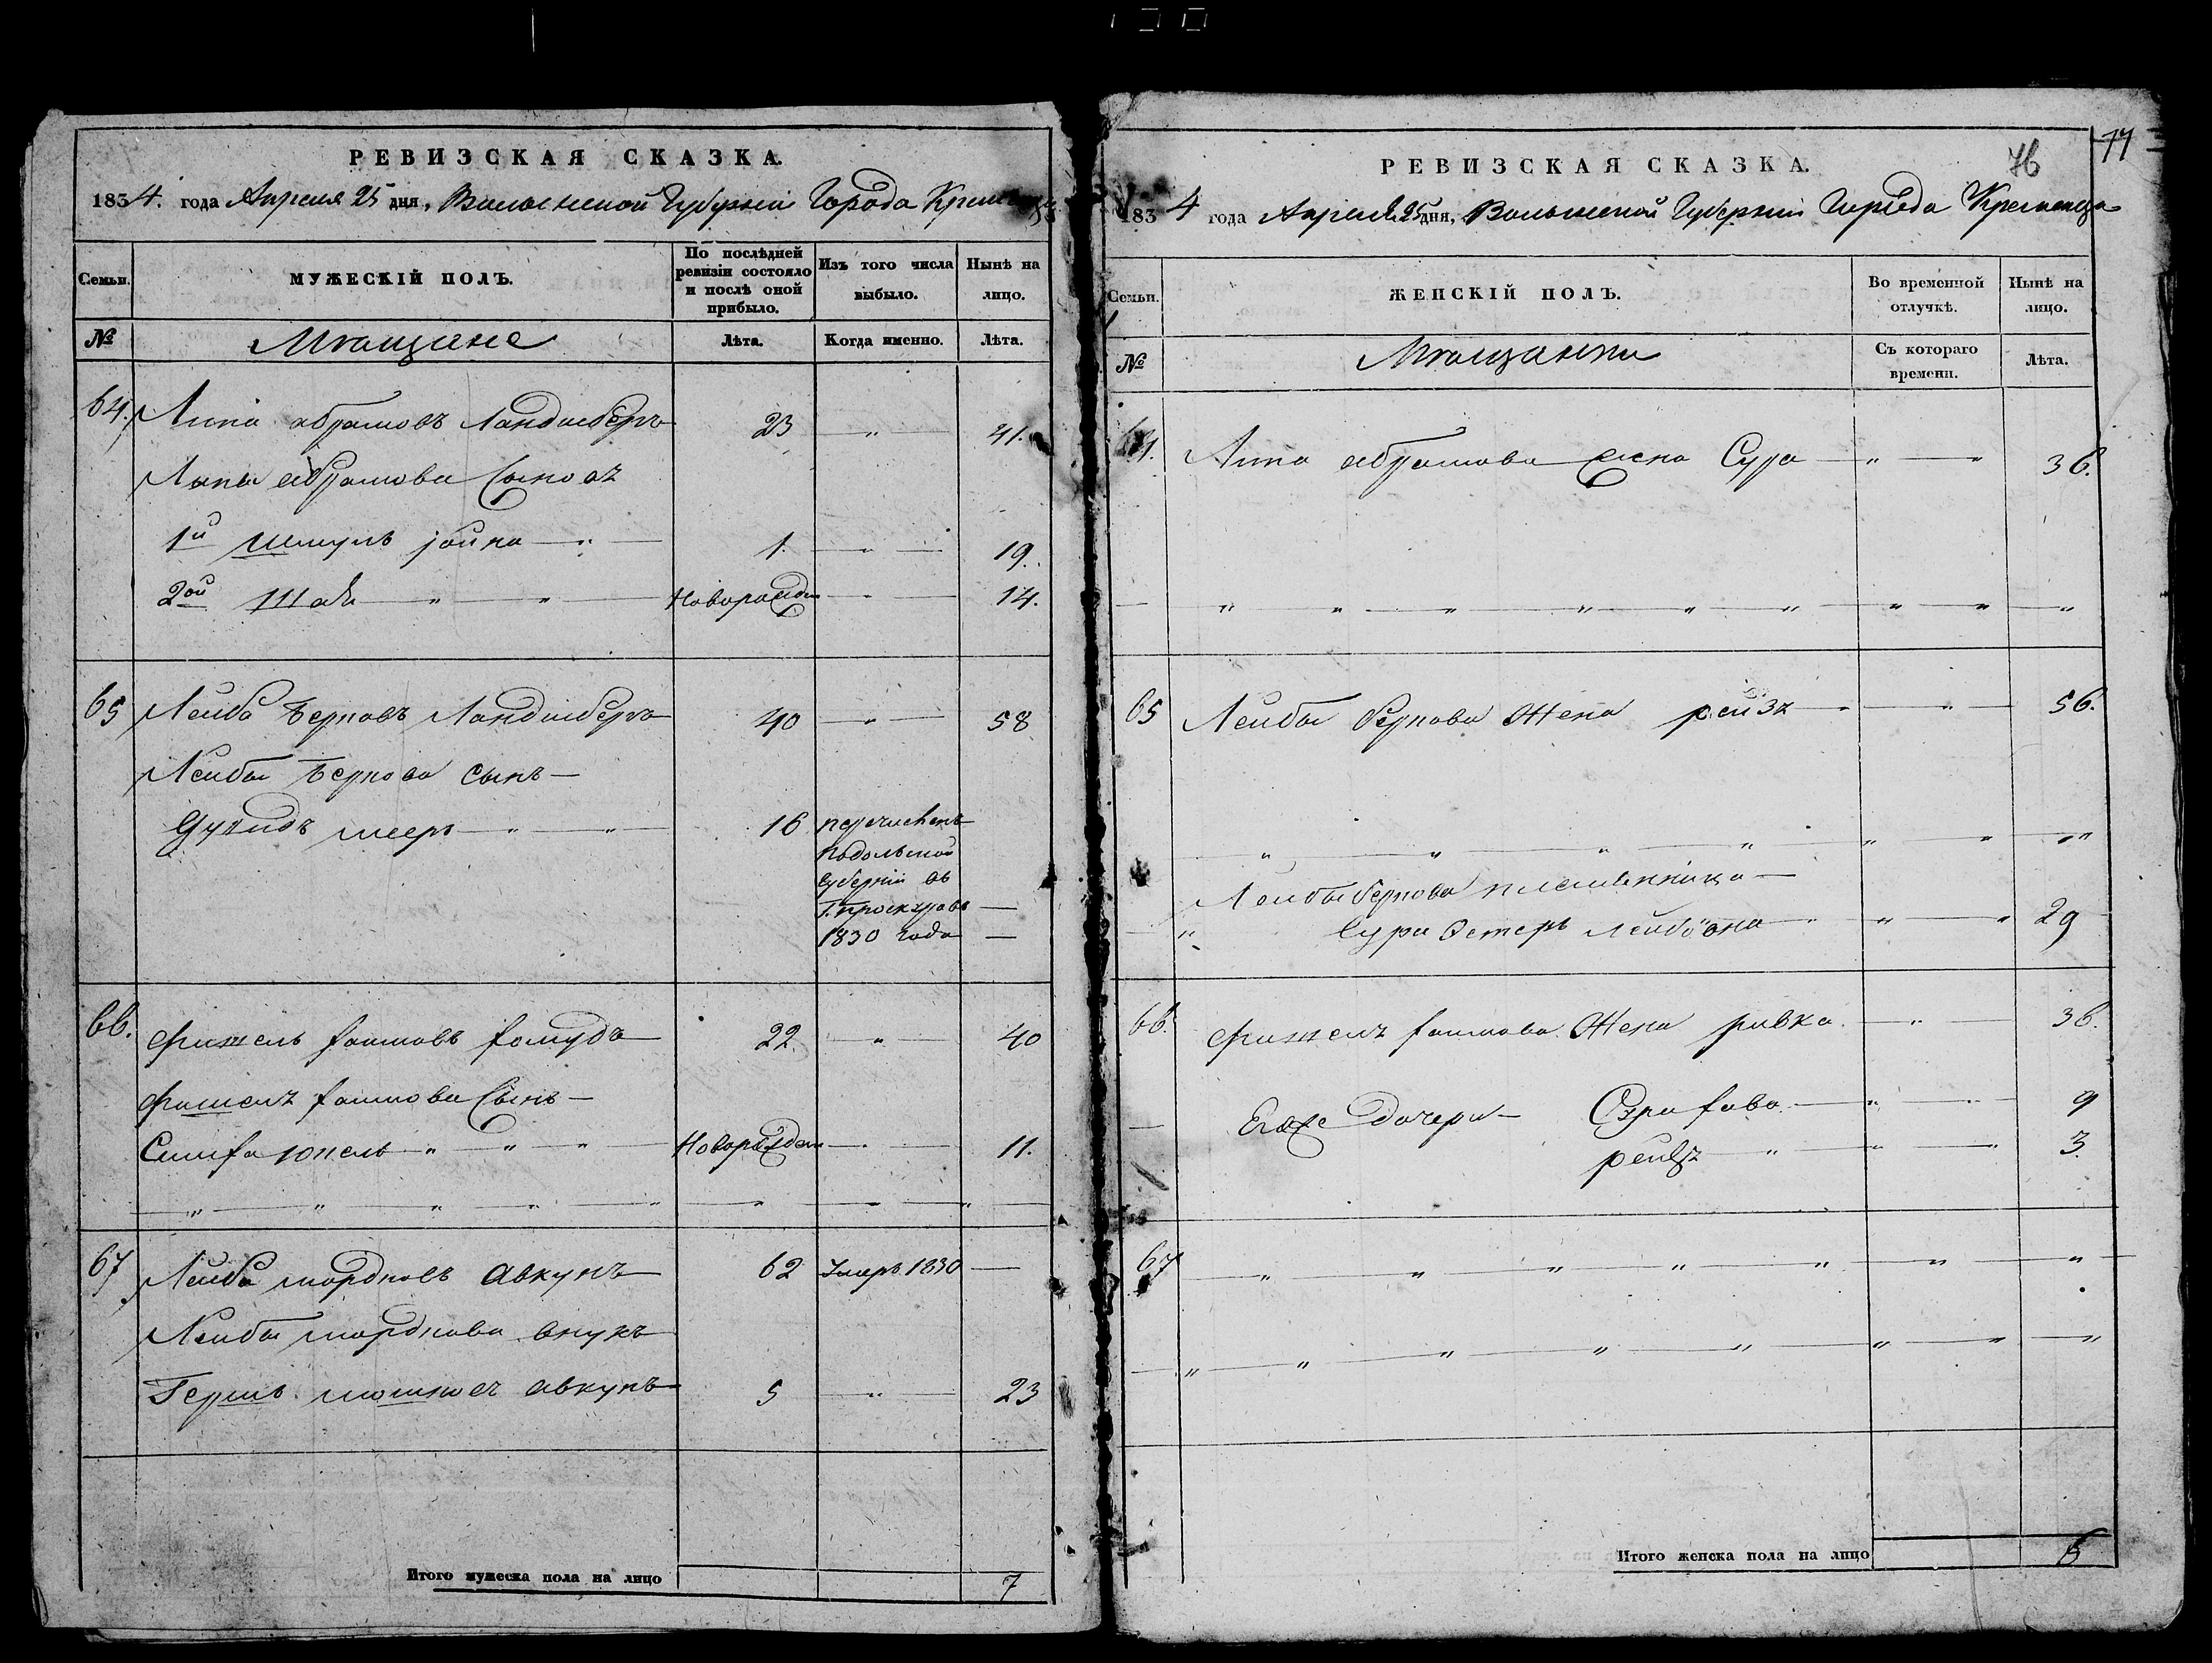 РЕВИЗСКАЯ СКАЗКА.
1834. года Апреля 25 дня, Волынской Губерніи Города Кременца
Семьи.
МУЖЕСКІЙ ПОЛЪ.
По послѣдней ревизіи состояло и послѣ оной прибыло.
Изъ того числа выбыло.
Нынѣ на лицо.
№
Мѣщане
Лѣта.
Когда именно.
Лѣта.
64. Липа абрамовъ Ландисберъ 23 — " — 41.
Липы абрамова Сыновъ
1й Шмуль 1. — " — 19.
2ой " " Новорожден — " — 14.
65 Лейба Берковъ Ландисберъ 40 — " — 58
Лейбы Беркова сынъ —
Дувидъ меер " " 16 перечисленъ
Подольской
Губерніи въ
Г. Проскуровъ —
1830 года —
66. Фишель 22 — " — 40
Фишеля Сынъ —
Симха " " " Новорожден — " — 11.
" " " " " " " "
67 Лейба мордковъ Авкунъ 62 Умеръ 1830 —
Лейбы мордкова внукъ
Гершъ мошковъ авкунъ 5 — " — 23
Итого мужеска пола на лицо 7
76
77
РЕВИЗСКАЯ СКАЗКА.
1834 года Апреля 25 дня, Волынской Губерніи Города Кременца
Семьи.
ЖЕНСКІЙ ПОЛЪ.
Во временной отлучкѣ.
Нынѣ на лицо.
№
Мѣщанки
Съ котораго времени.
Лѣта.
64. Липа абрамова жена Сура " " 36.
" " " " " " " " "
65 Лейбы беркова Жена рейзя " 56.
" " " " " " "
Лейбы беркова племенница —
" Сура Эстеръ лейбовна " " 29
66. Фишеля Жена ривка. " 36.
Егоже дочери — " 9
" " " 3.
67 " " " " " " "
" " " " " " " "
Итого женска пола на лицо 6